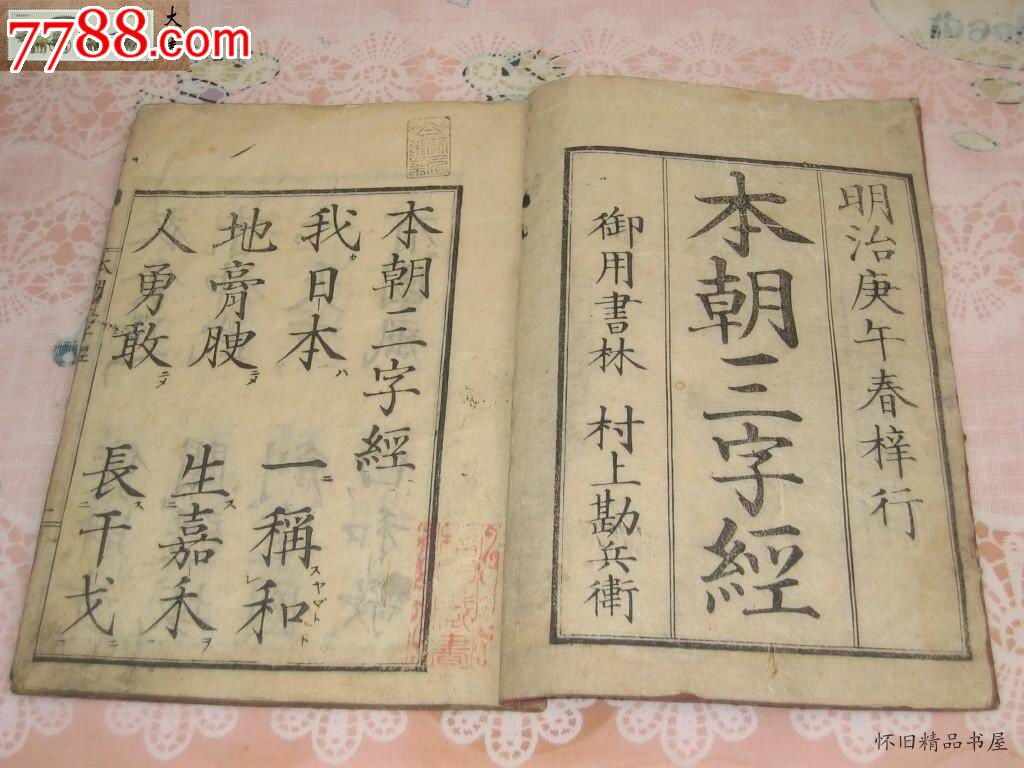 7788.com
明治庚午春梓行
本朝三字經
御用書林 村上勘兵衛
本朝三字經
我日本ハ 一ニ稱スヤマトト和
地膏腴ニヌ 生スレ嘉禾ヲ
人勇敢ニヌ 長ス干戈ニ
怀旧精品书屋